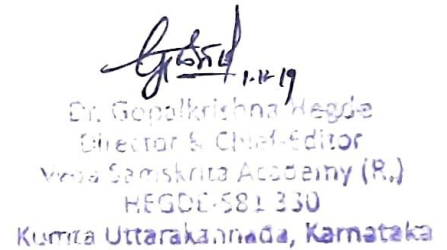 1-11-19
Dr. Gopalkrishna Hegde
Director & Chief-Editor
Veda Samskrita Academy (R.)
HEGDE-581 330
Kumta Uttarakannada, Karnataka